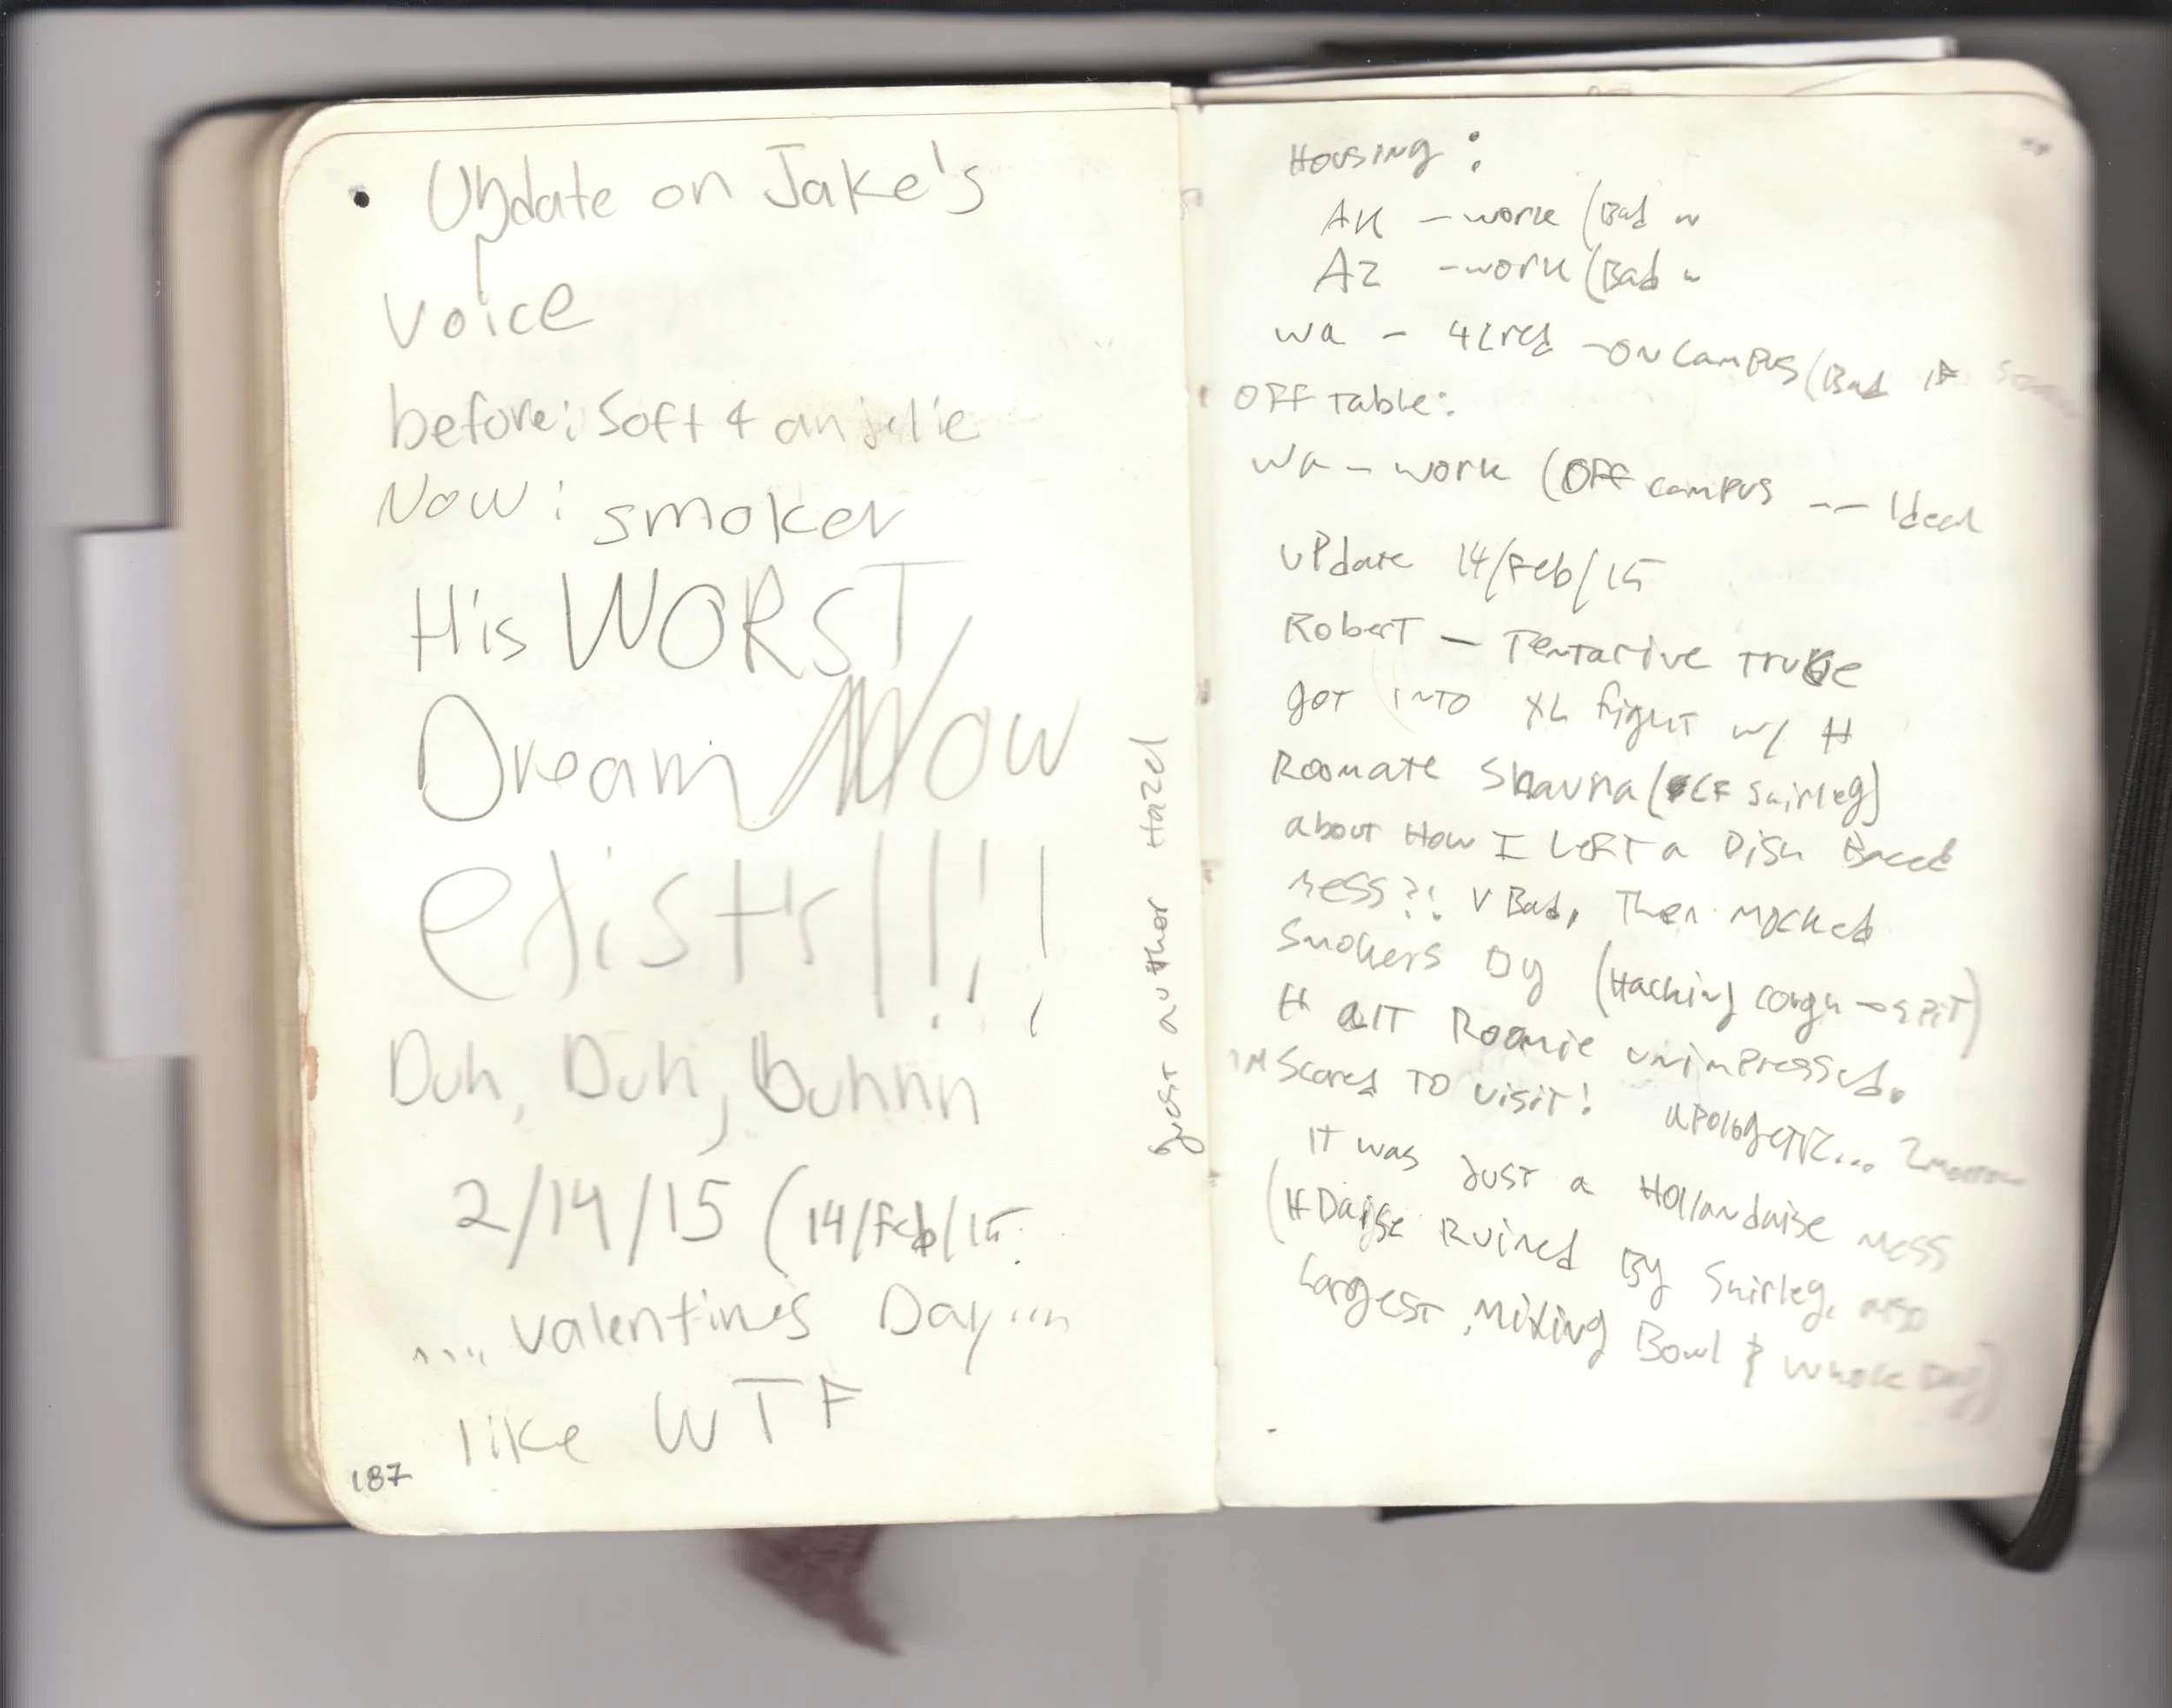 • Update on Jake's
voice
before: Soft &
Now: smoker
His WORST
Dream Now
exists!!!!
Duh, Duh, Duhnnn
2/14/15 (14/Feb/15
.... valentines Day....
like WTF
187
guest author Hazel
Housing:
AK - work (Bad w
AZ - work (Bad w
Wa - 4Cred - on campus (Bad if
OFF Table:
Wa - work (Off campus -- Ideal
update 14/Feb/15
Robert - Tentative truce
got into XL fight w/ H
Roomate Shauna (CF Shirleg)
about How I LeFT a Dish Based
mess?! V Bad, Then mocked
Smokers by (Hacking cough → spit)
H alT Roomie unimpressed.
Im Scared to visit! apologetic... 2morrow
IT was Just a Hollandaise mess
(H Daise Ruined By Shirleg, also
Largest Mixing Bowl & whole Day)